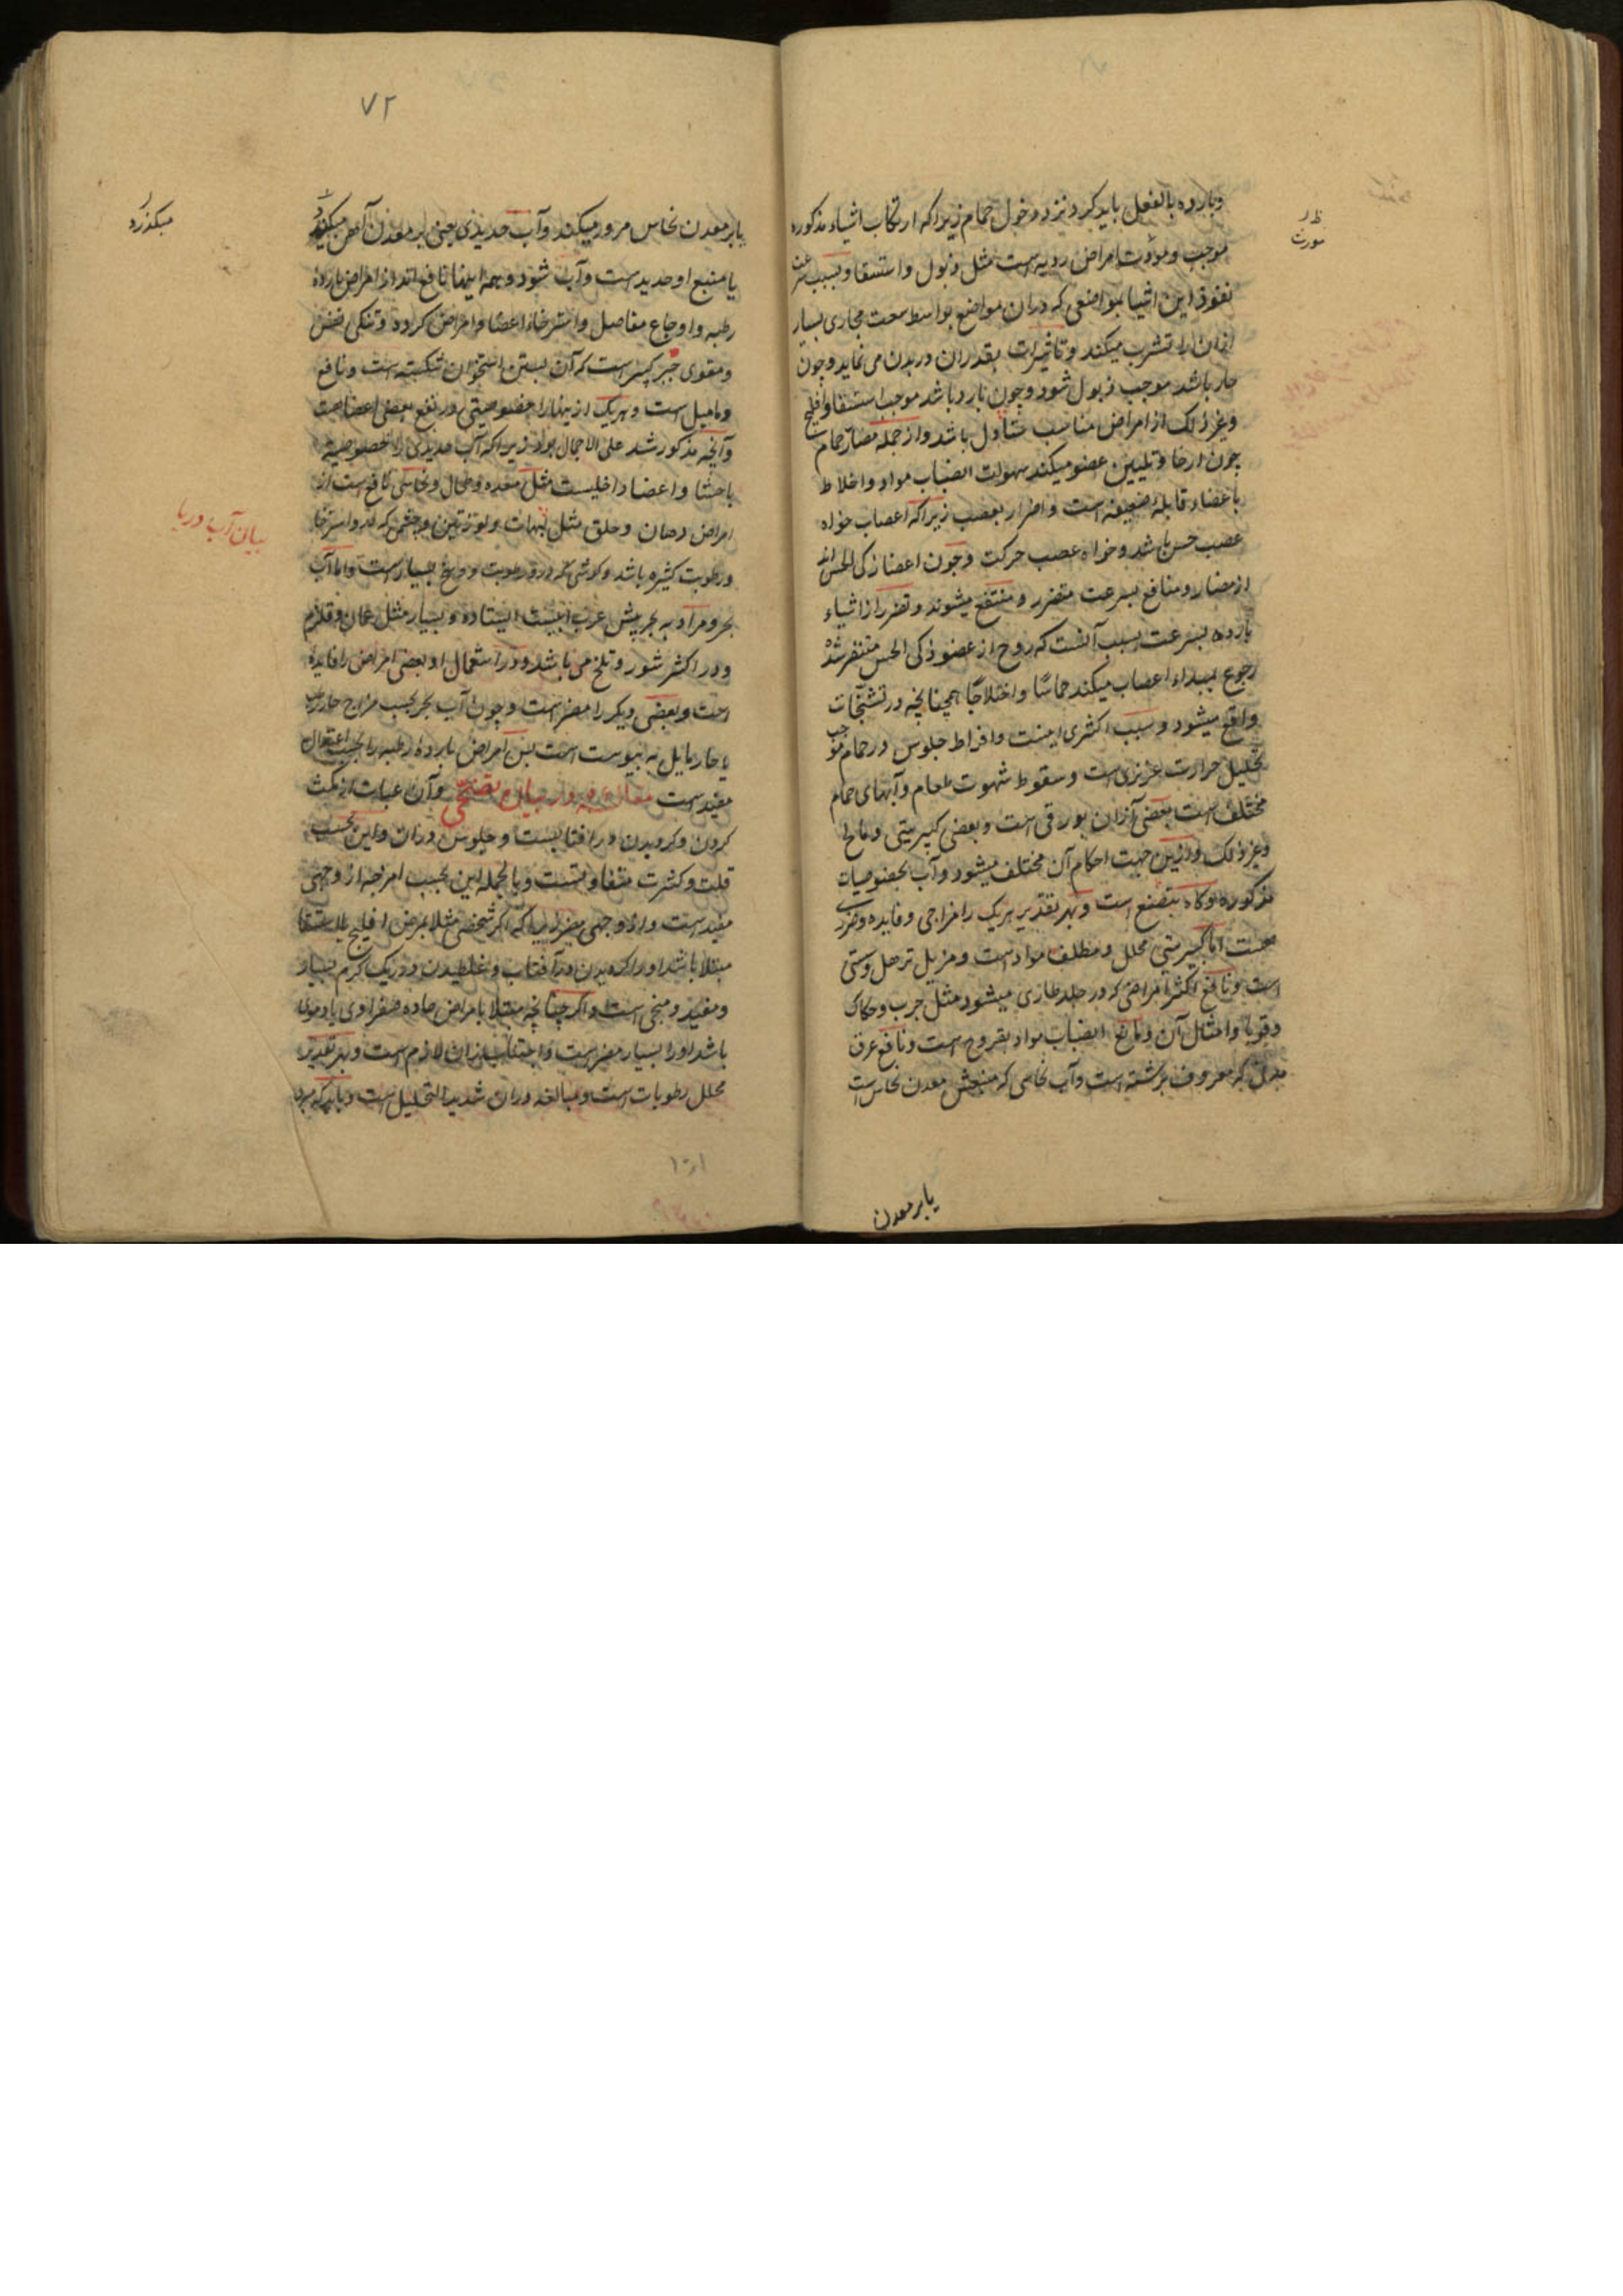 وبارده بالفعل باید کرد نزد دخول حمام زیرا که ارتکاب اشیاء مذکوره
موجب و مورث امراض ردیه است مثل ذبول و استسقا و بسبب سرعت
نفوذ این اشیا بمواضعی که دران مواضع بواسطه سعت مجاری بسیار
ازان را تشرب میکند و تاثیرات بقدر ان در بدن می نماید و چون
حار باشد موجب ذبول شود و چون بارد باشد موجب استسقا و افلیج
وغیر ذلک از امراض مناسب متناول باشد و از جمله مضار حمام
چون ارخا و تلیین عضو میکند سهولت انصباب مواد و اخلاط
باعضاء قابله ضعیفه است و اضرار بعصب زیرا که اعصاب خواه
عصب حس باشد و خواه عصب حرکت و چون اعضاء ذکی الحس اند
از مضار و منافع بسرعت متضرر و منتفع میشوند و تضرر از اشیاء
بارده بسرعت بسبب آنست که روح از عضو ذکی الحس متنفر شده
رجوع بمبداء اعصاب میکند حماسًا و اختلاجًا همچنانچه در تشنجات
واقع میشود و سبب اکثری اینست و افراط جلوس در حمام موجب
تحلیل حرارت غریزی است و سقوط شهوت طعام و آبهای حمام
مختلف است بعضی ازان بورقی است و بعضی کبریتی و مالح
وغیر ذلک و ازین جهت احکام آن مختلف میشود و آب بخصوصیات
مذکوره و کاه بتصنع است و بهر تقدیر هر یک را مزاجی و فایده و ضرر
هست اما کبریتی محلل و مطلف مواد است و مزیل ترهل و سستی
است و نافع اکثر امراضی که در جلد طاری میشود مثل جرب و حکاک
و قوبا و امثال آن و مانع انصباب مواد بقروح است و نافع عرق
مدنی که معروف برشته است و آب نحاسی که منبعش معدن نحاس است
یا بر معدن
مورث
٧٢
یا بر معدن نحاس مرور میکند و آب حدیدی یعنی بر معدن آهن میکذرد
یا منبع او حدید است و آب شود و همه اینها نافع اند از امراض بارده
رطبه و اوجاع مفاصل و استرخاء اعضا و امراض کرده و تنکی نفس
و مقوی جبر کسر است که آن بستن استخوان شکسته است و نافع
دمامیل است و هر یک از ینها را خصوصیتی در نفع بعضی اعضا هست
و آنچه مذکور شد علی الاجمال بود زیرا که آب حدیدی را خصوصیت
باحشا و اعضاء داخلیست مثل معده و طحال و نحاسی نافع است از
امراض دهان و حلق مثل لهات و لوزتین و چشمی که در و استرخا
و رطوبت کثیره باشد و کوشی که درو رطوبت و وسخ بسیار است و اما آب
بحر و مراد به بحر پیش عرب آبیست ایستاده و بسیار مثل عمان و قلزم
و در اکثر شور و تلخ می باشد و در استعمال او بعضی امراض را فایده
است و بعضی دیکر را مضر است و چون آب بحر بحسب مزاج حار است
یا حار مایل به یبوست است پس امراض بارده رطبه را بحسب اعتدال
مفید است مقاله در بیان تضحی و آن عبارت از مکث
کردن و کردیدن در افتابست و جلوس دران و این بحسب
قلت و کثرت متفاوتست و بالجمله این بحسب امزجه از وجهی
مفید است و از وجهی مضر زیرا که اکر شخصی مثلا بمرض افلیج یا استسقا
مبتلا باشد او را کردیدن در آفتاب و غلطیدن در ریک کرم بسیار
و مفید و منجی است و اکر چنانچه مبتلا بامراض حاده صفراوی یا دموی
باشد او را بسیار مضر است و اجتناب ازان لازم است و بهر تقدیر
محلل رطوبات است و مبالغه دران شدید التحلیل است و باید که سر را
میکذرد
بیان آب دریا